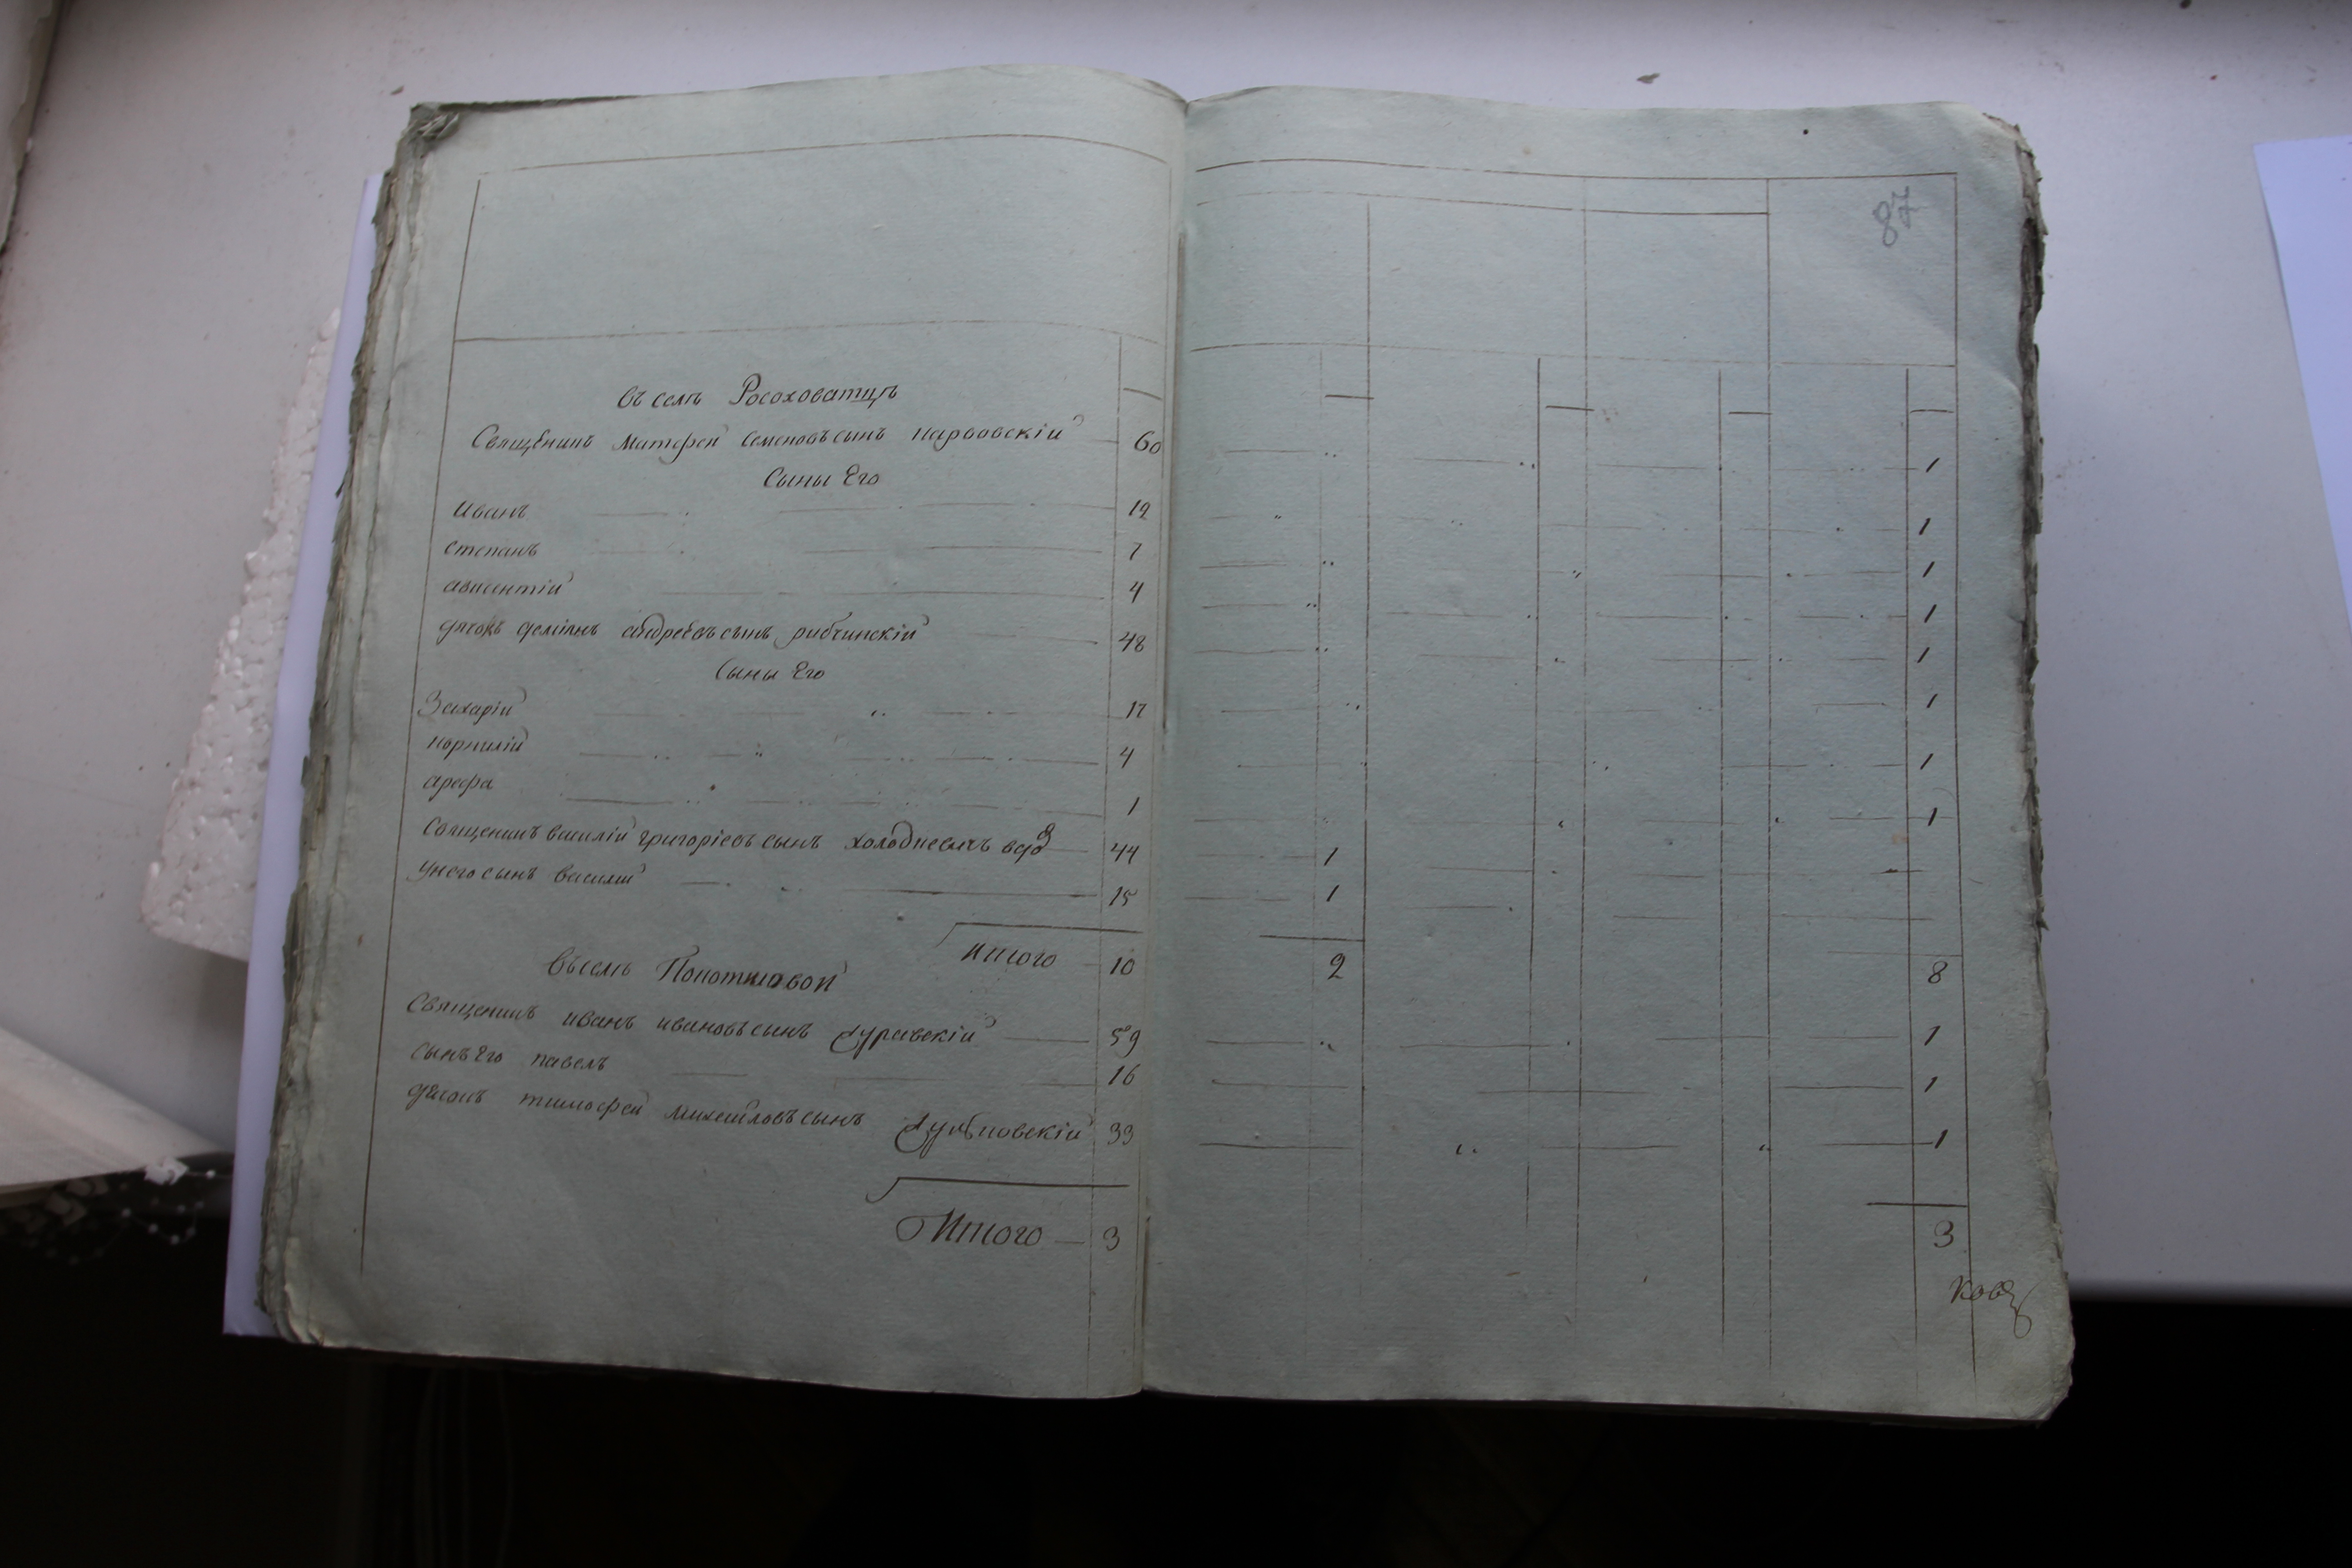 87
въ селѣ Росоховатцѣ
Священникъ Матфей Семеновъ сынъ Нарвовскій 60 1
Сыны Его
Иванъ 12 1
Степанъ 7 1
Авксентій 4 1
дячокъ деміянъ андреевъ сынъ рибчинскій 48 1
Сыны Его
Захарій 17 1
Корнилій 4 1
Арефа 1 1
Священникъ василій григоріевъ сынъ 44 1
У него сынъ василий 15 1
Итого 10 2 8
Въ селѣ
Священникъ иванъ ивановъ сынъ 59 1
Сынъ Его павелъ 16 1
тимофей михайловъ сынъ 33 1
Итого 3 3